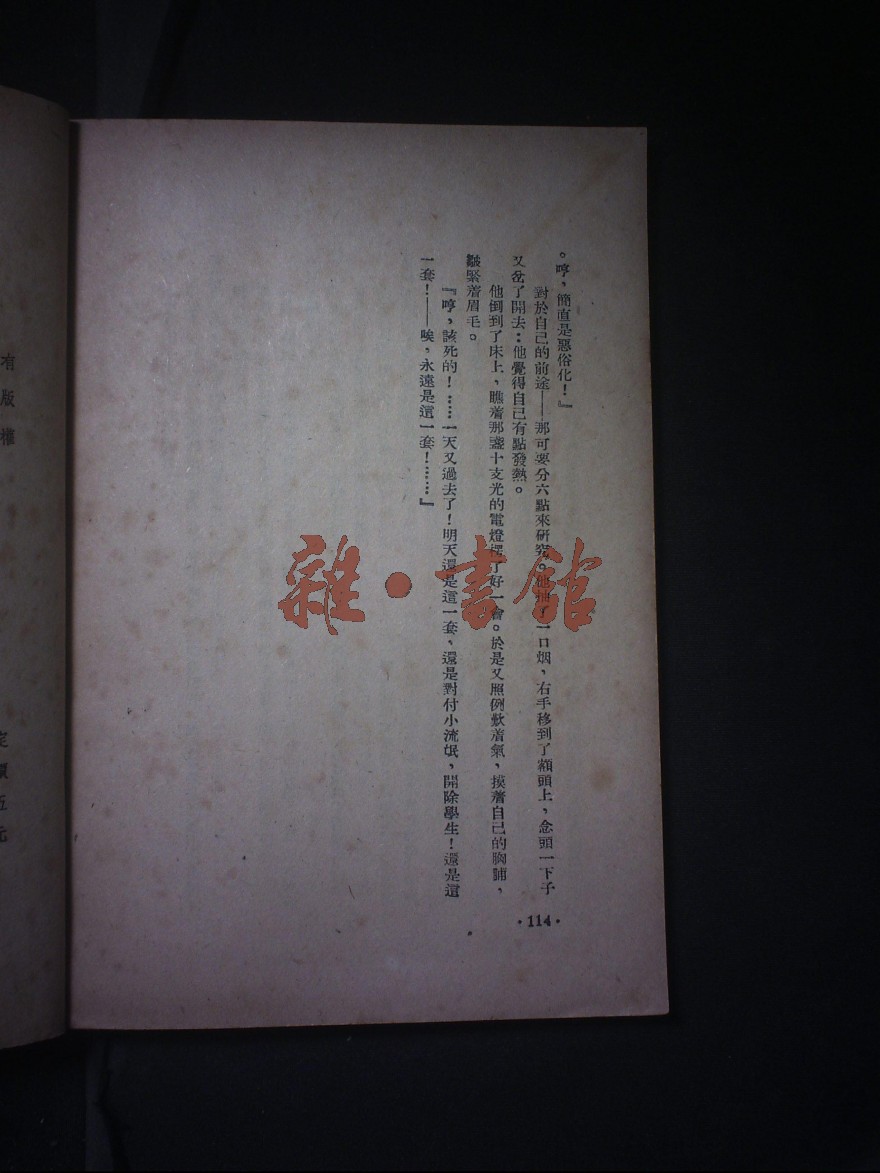 。哼，簡直是惡俗化！』
對於自己的前途——那可要分六點來研究。他抽了一口烟，右手移到了額頭上，念頭一下子
又岔了開去：他覺得自己有點發熱。
他倒到了床上，瞧着那盞十支光的電燈楞了好一會。於是又照例歎着氣，摸着自己的胸脯，
皺緊着眉毛。
『哼，該死的！……一天又過去了！明天還是這一套，還是對付小流氓，開除學生！還是這
一套！——唉，永遠是這一套！……』
·114·
雜·書館
有版權
定價五元